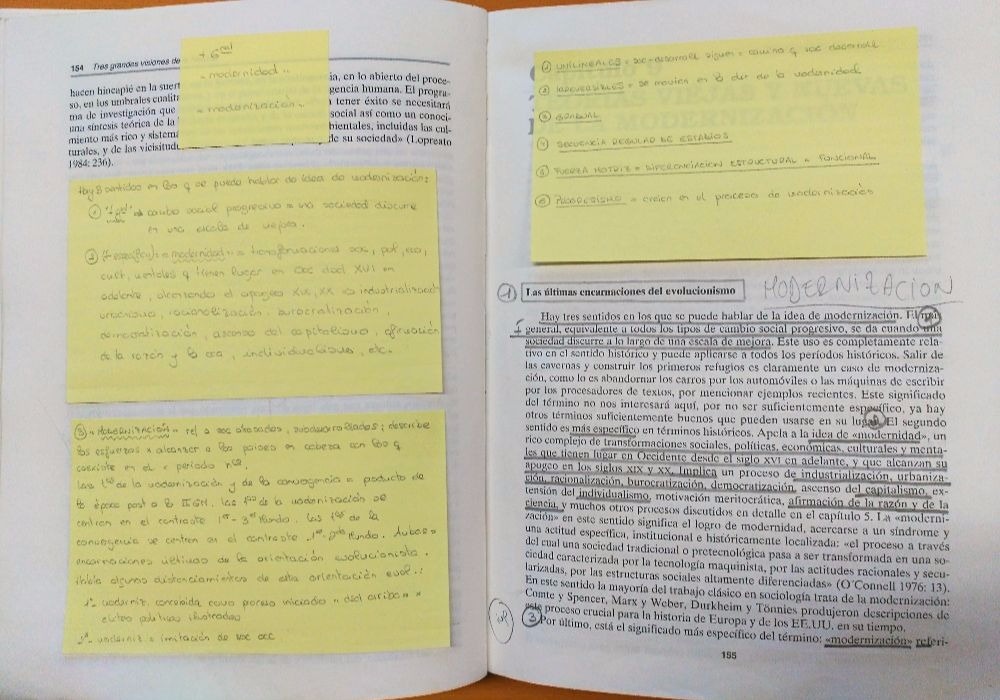 154 Tres grandes visiones de
+ Gral
- modernidad..
- modernización..
hacen hincapié en la suert
ia, en lo abierto del proce-
so, en los umbrales cualita
gencia humana. El progra-
ma de investigación que
tener éxito se necesitará
una síntesis teórica de la
social así como un conoci-
miento más rico y sistema
bientales, incluidas las cul-
turales, y de las vicisitude
de su sociedad» (Lopreato
1984: 236).
Hay 3 sentidos en los q se puede hablar de idea de modernización:
① cambio social progresivo = una sociedad discurre
en una escala de mejora.
② = modernidad.. = transformaciones soc, pol, eco,
cult, mentales q tienen lugar en occ dsd XVI en
adelante, alcanzando el apogeo XIX, XX => industrializació
urbanismo, racionalización, burocratización,
democratización, ascenso del capitalismo, afirmación
de la razón y la cca, individualismo, etc.
③ "MODERNIZACIÓN" = rel a soc atrasadas, subdesarrolladas; describe
los esfuerzos x alcanzar a los países en cabeza con los q
coexiste en el periodo
de la modernización y de la convergencia = producto de
la época post a la IIGM. de la modernización se
centran en el contraste 1er- 3er Mundo. de la
convergencia se centra en el contraste 1er-2do Mundo. Ambas =
encarnaciones últimas de la orientación evolucionista.
Había algunos distanciamientos de esta orientación evol.:
1º- moderniz. concebida como proceso iniciado "dsd arriba" x
élites políticas ilustradas
2º- moderniz = imitación de soc occ
① UNILINEALES = soc - desarroll siguen = camino q soc desarroll
② IRREVERSIBLES = se movían en la dir de la modernidad
③ GRADUAL
④ SECUENCIA REGULAR DE ESTADIOS
⑤ FUERZA MOTRIZ = DIFERENCIACIÓN ESTRUCTURAL = FUNCIONAL
⑥ PROGRESISMO = creían en el proceso de modernización
① Las últimas encarnaciones del evolucionismo MODERNIZACION
Hay tres sentidos en los que se puede hablar de la idea de modernización. El más
general, equivalente a todos los tipos de cambio social progresivo, se da cuando una
sociedad discurre a lo largo de una escala de mejora. Este uso es completamente rela-
tivo en el sentido histórico y puede aplicarse a todos los períodos históricos. Salir de
las cavernas y construir los primeros refugios es claramente un caso de moderniza-
ción, como lo es abandonar los carros por los automóviles o las máquinas de escribir
por los procesadores de textos, por mencionar ejemplos recientes. Este significado
del término no nos interesará aquí, por no ser suficientemente específico, ya hay
otros términos suficientemente buenos que pueden usarse en su lugar. El segundo
sentido es más específico en términos históricos. Apela a la idea de «modernidad», un
rico complejo de transformaciones sociales, políticas, económicas, culturales y menta-
les que tienen lugar en Occidente desde el siglo XVI en adelante, y que alcanzan su
apogeo en los siglos XIX y XX. Implica un proceso de industrialización, urbaniza-
ción, racionalización, burocratización, democratización, ascenso del capitalismo, ex-
tensión del individualismo, motivación meritocrática, afirmación de la razón y de la
ciencia, y muchos otros procesos discutidos en detalle en el capítulo 5. La «moderni-
zación» en este sentido significa el logro de modernidad, acercarse a un síndrome y
una actitud específica, institucional e históricamente localizada: «el proceso a través
del cual una sociedad tradicional o pretecnológica pasa a ser transformada en una so-
ciedad caracterizada por la tecnología maquinista, por las actitudes racionales y secu-
larizadas, por las estructuras sociales altamente diferenciadas» (O´Connell 1976: 13).
En este sentido la mayoría del trabajo clásico en sociología trata de la modernización:
Comte y Spencer, Marx y Weber, Durkheim y Tönnies produjeron descripciones de
este proceso crucial para la historia de Europa y de los EE.UU. en su tiempo.
③ Por último, está el significado más específico del término: «modernización» referi-
155